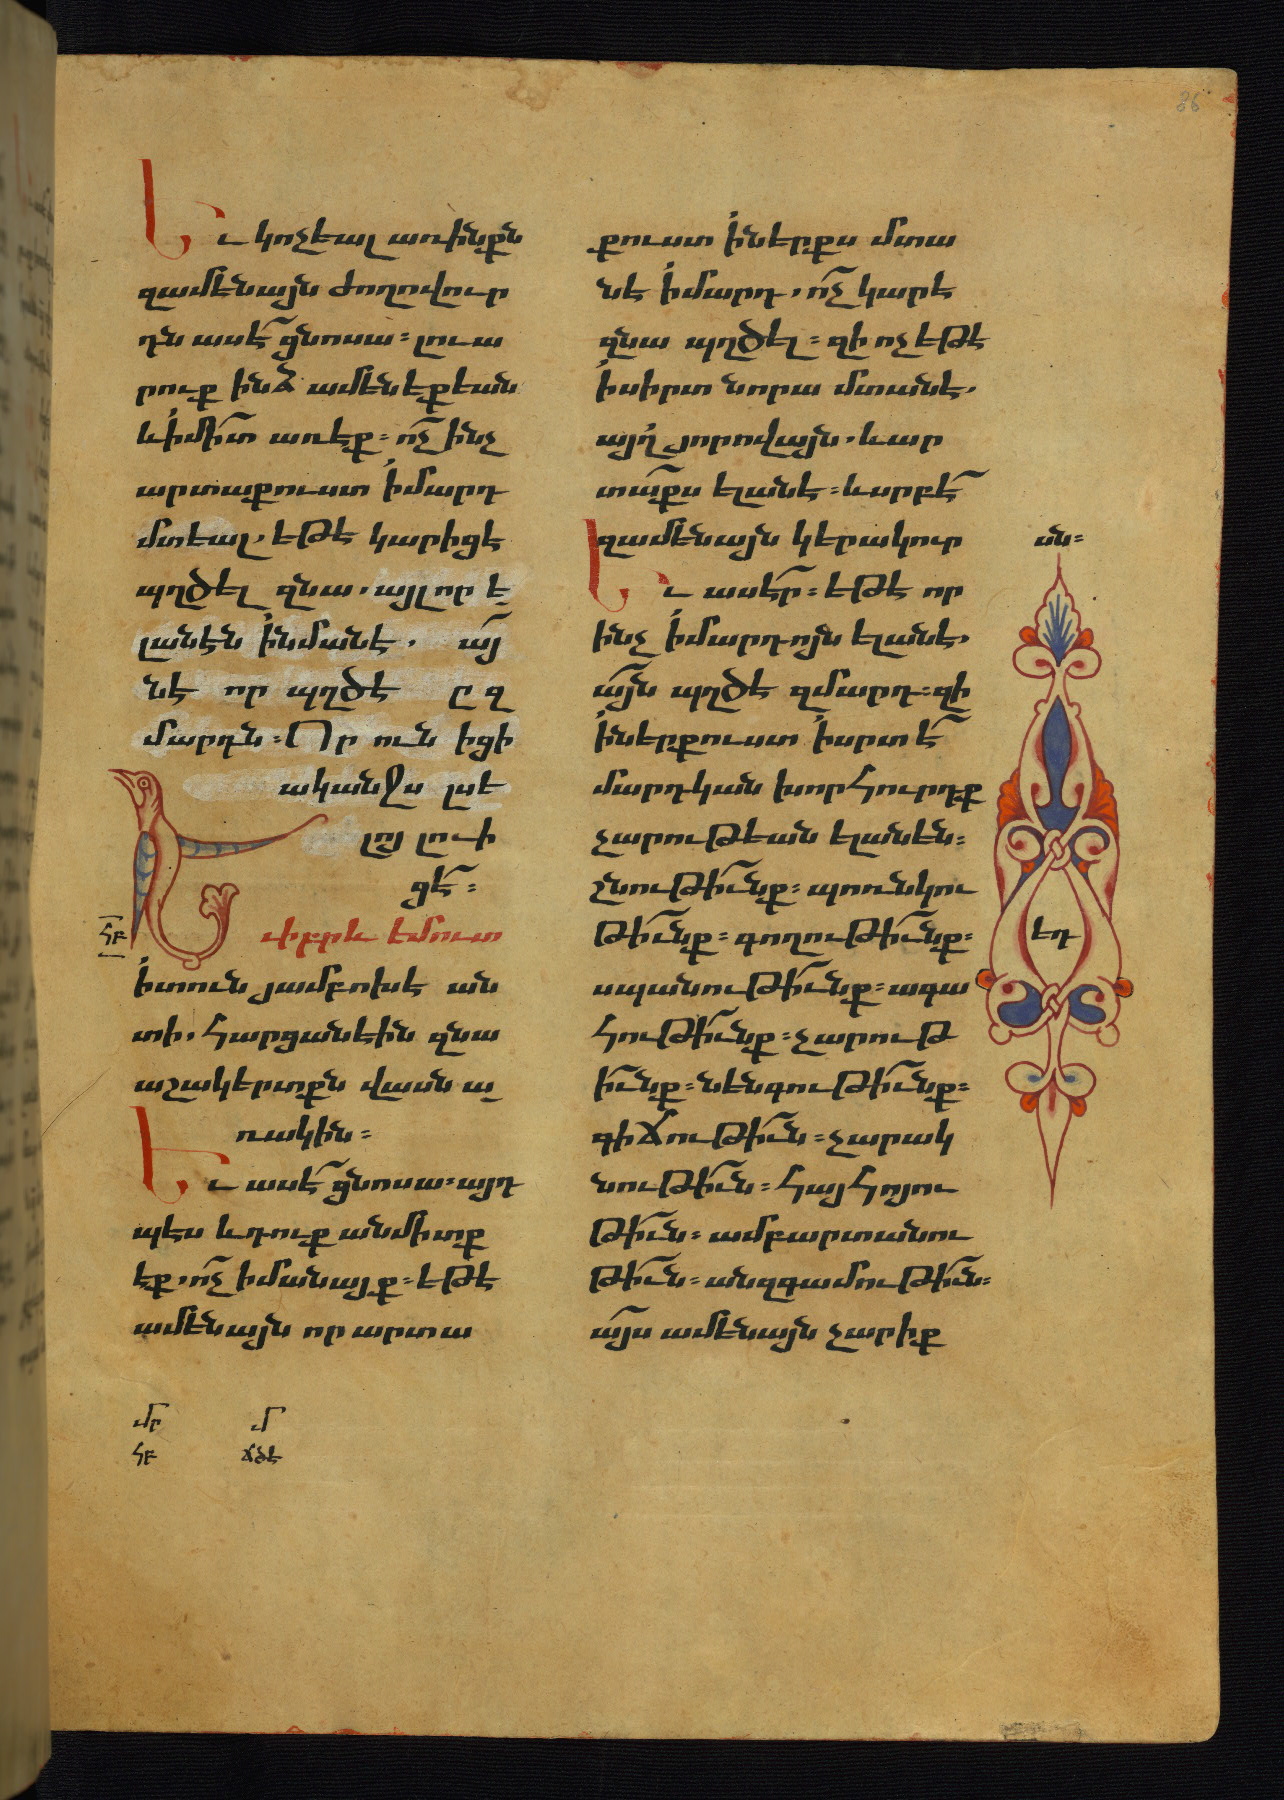 86
Եւ կոչեալ առինքն
զամենայն ժողովուր
դն ասէ ցնոսա։ լուա
րուք ինձ ամենեքեան
և ի միտ առէք։ ոչ ինչ
արտաքուստ ի մարդ
մտեալ. եթէ կարիցէ
պղծել զնա. այլ որ ե
լանեն ի նմանէ. այն
նէ որ պղծէ ըզ
մարդն։ Որ ուն իցի
ականջս լսե
լոյ լուի
ցէ։
Եւ իբրև եմուտ
ՀԲ
ի տուն յամբոխէ ան
տի. հարցանէին զնա
աշակերտքն վասն ա
ռակին։
Եւ ասէ ցնոսա։ այդ
պէս և դուք անմիտք
էք. ոչ իմանայք։ եթէ
ամենայն որ արտա
քուստ ի ներքս մտա
նէ ի մարդ. ոչ կարէ
զնա պղծել։ զի ոչ եթէ
ի սիրտ նորա մտանէ.
այլ յորովայն. և ար
տաքս ելանէ։ և սրբէ
զամենայն կերակուր
ան։
Եւ ասէր։ եթէ որ
ինչ ի մարդոյն ելանէ.
այն պղծէ զմարդ։ զի
ի ներքուստ ի սրտէ
մարդկան խորհուրդք
չարութեան ելանեն։
շնութիւնք։ պոռնկու
թիւնք։ գողութիւնք։
եդ
սպանութիւնք։ ագա
հութիւնք։ չարութ
իւնք։ նենգութիւնք։
գիճութիւն։ չարակ
նութիւն։ հայհոյու
թիւն։ ամբարտաւանու
թիւն։ անզգամութիւն։
այս ամենայն չարիք
մր մ
ՀԲ ՃԾԷ